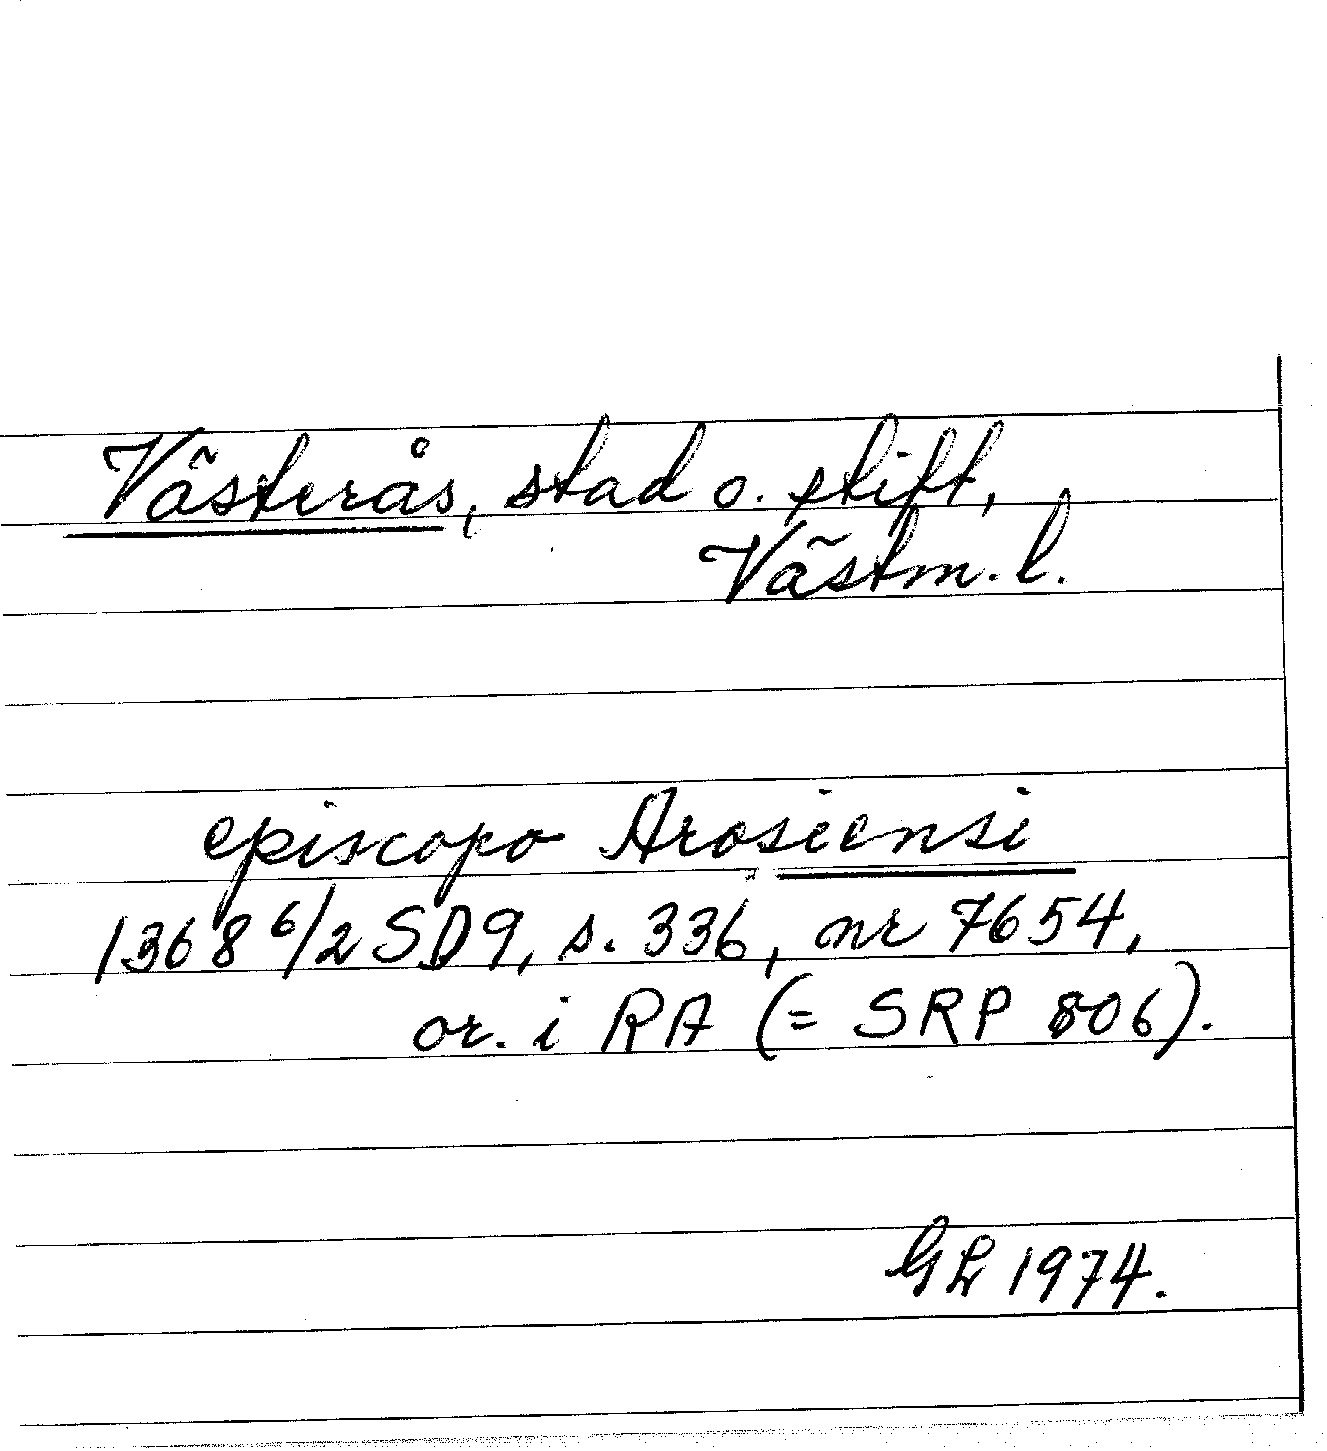 Västerås, stad o. stift,
Västm. l.
episcopo Arosiensi
1368 6/2 SD9, s. 336, nr 7654,
or. i RA (= SRP 806).
GL 1974.